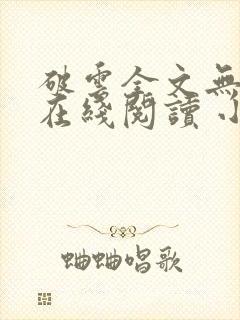 破雲全文無
在綫閱讀
蛐蛐唱歌